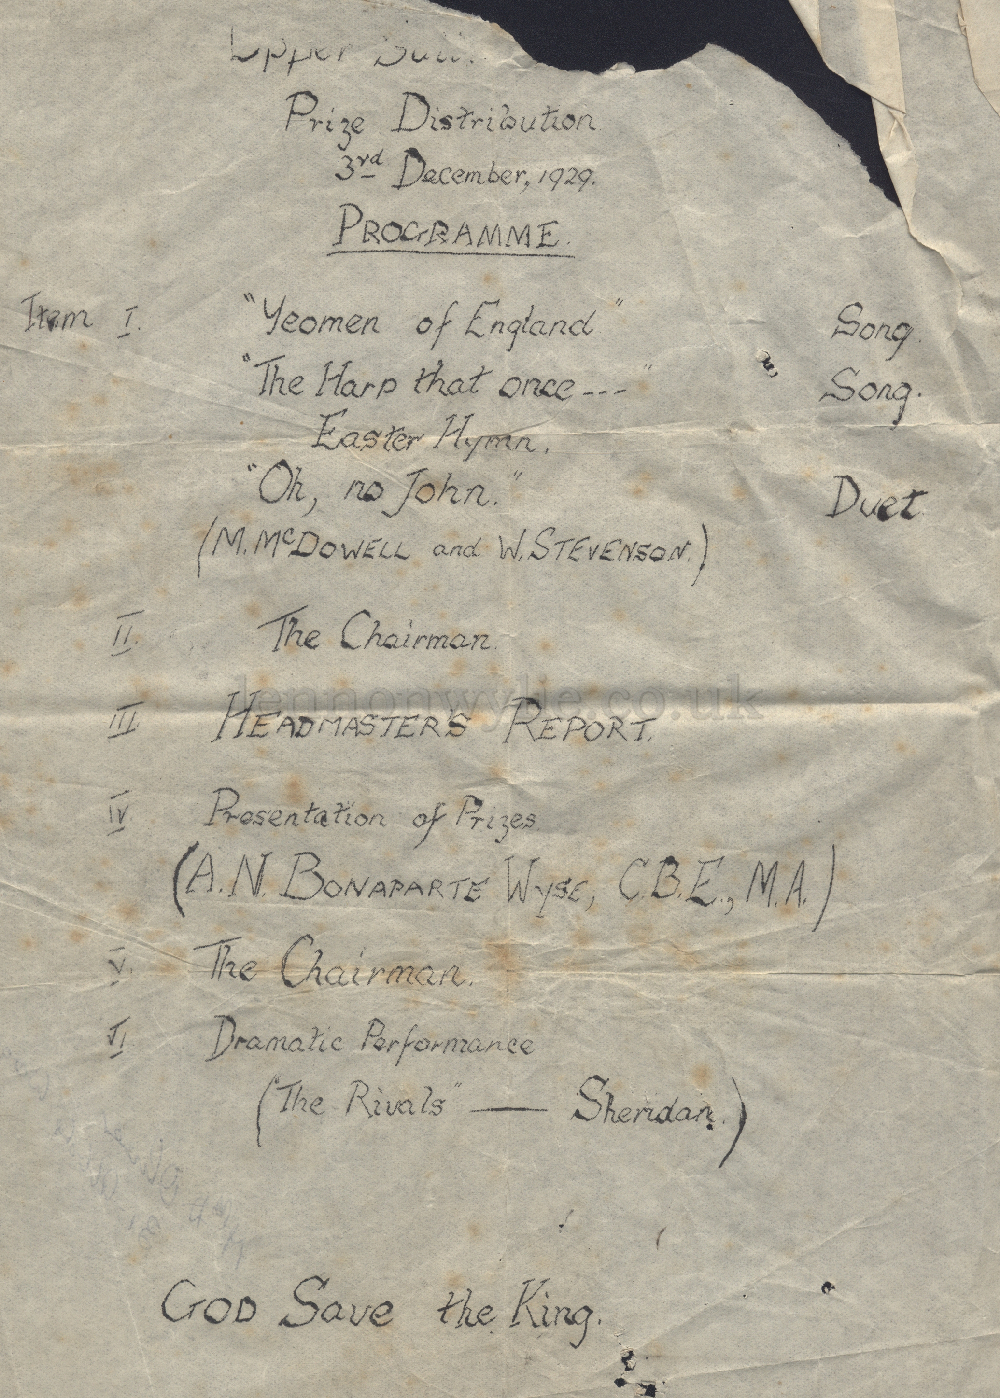 Upper
Prize Distribution
3rd December, 1929.
PROGRAMME.
Item I. "Yeomen of England" Song.
"The Harp that once---" Song.
Easter Hymn.
"Oh, no John." Duet
(M. McDOWELL and W. STEVENSON.)
II. The Chairman.
III. HEADMASTER'S REPORT.
lennonwylie.co.uk
IV Presentation of Prizes.
(A.N. BONAPARTE WYSE, C.B.E., M.A.)
V. The Chairman.
VI Dramatic Performance
("The Rivals" — Sheridan.)
GOD Save the King.